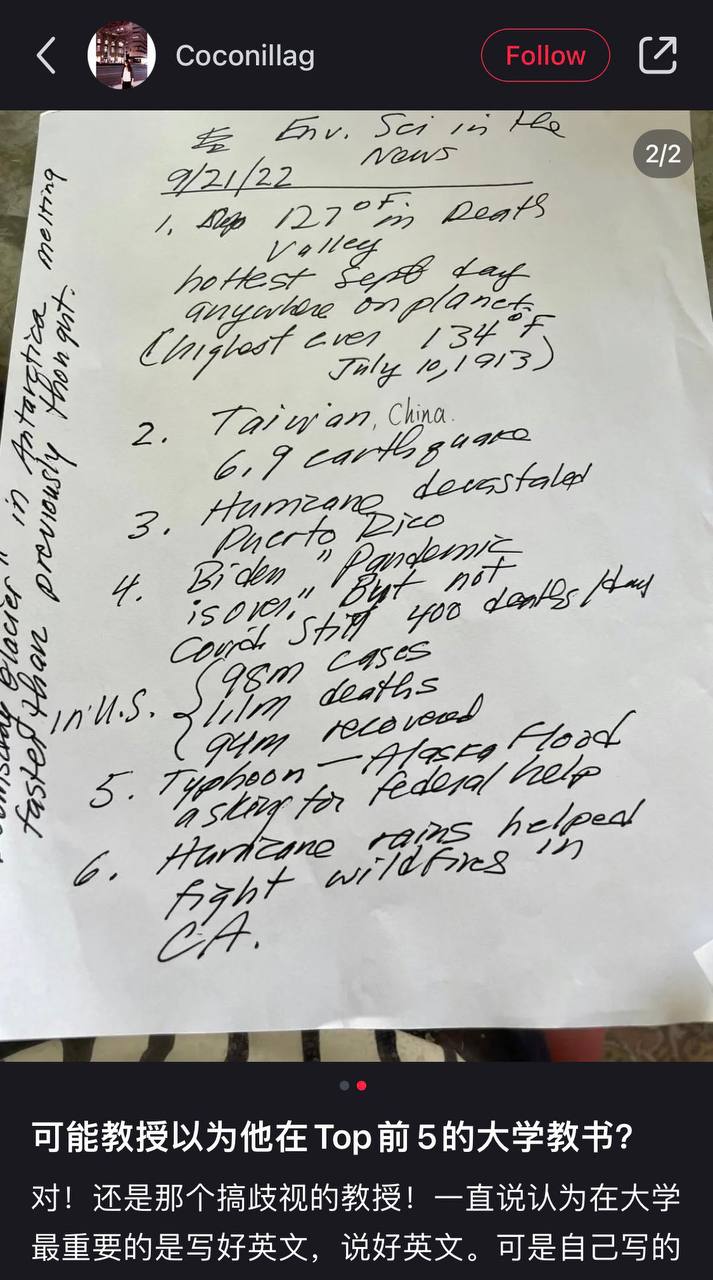 Coconillag
Follow
2/2
Env. Sci in the
News
9/21/22
1. 127°F in Death
Valley
hottest Sept day
anywhere on planet
(highest ever 134°F
July 10, 1913)
2. Taiwan, China.
6.9 earthquake
3. Hurricane devastated
Puerto Rico
4. Biden "Pandemic
is over." But not
Covid still 400 deaths/day
in U.S. { 98m cases
1.1m deaths
94m recovered
5. Typhoon — Alaska Flood
asking for federal help
6. Hurricane rains helped
fight wildfires in
CA.
Glacier" in Antarctica melting
faster than previously thought.
可能教授以为他在Top前5的大学教书？
对！还是那个搞歧视的教授！一直说认为在大学
最重要的是写好英文，说好英文。可是自己写的